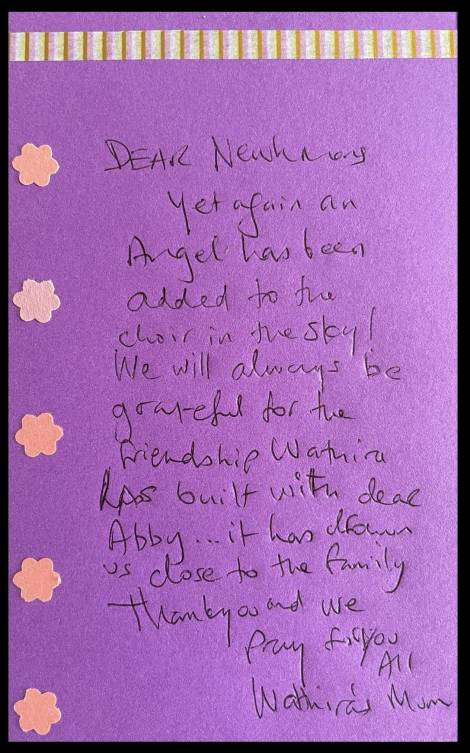 DEAR Newhmans
Yet again an
Angel has been
added to the
choir in the sky!
We will always be
grateful for the
friendship Wathira
has built with dear
Abby...it has drawn
us close to the family
Thankyou and we
Pray for you
All
Wathira's Mum